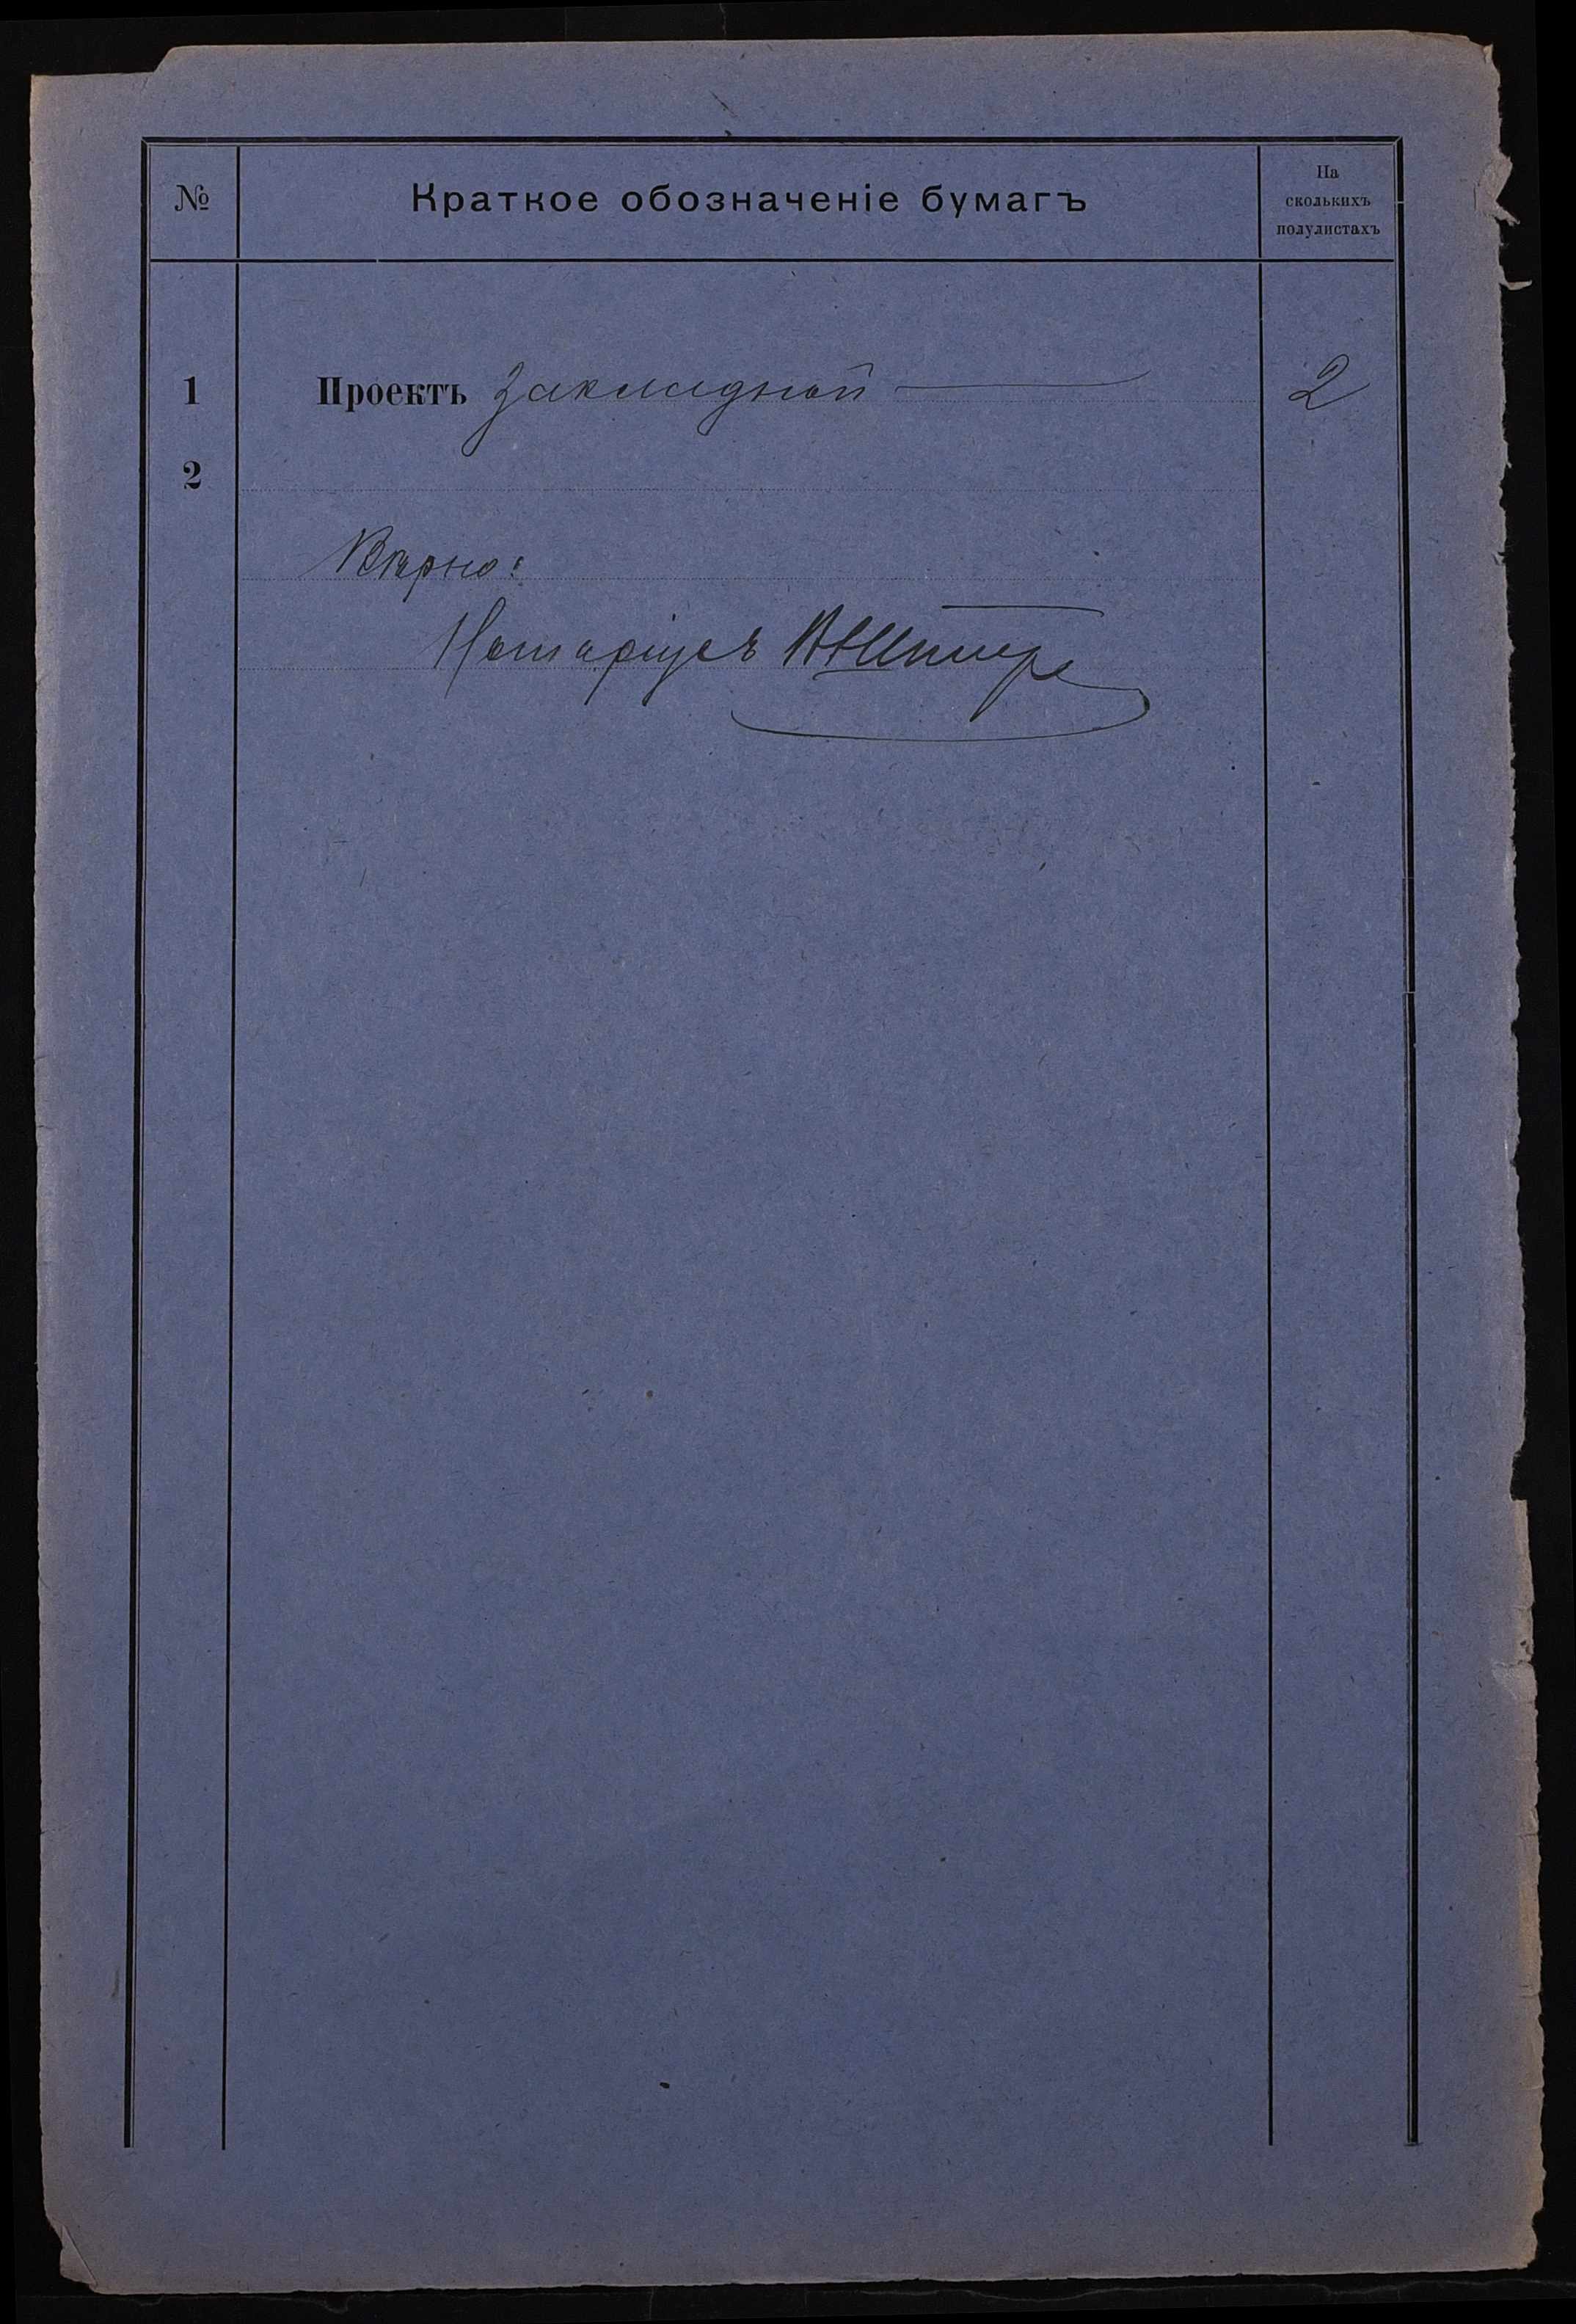 № Краткое обозначеніе бумагъ На
сколькихъ
полулистахъ
1 Проектъ закладной 2
2
Вѣрно:
Нотаріусъ